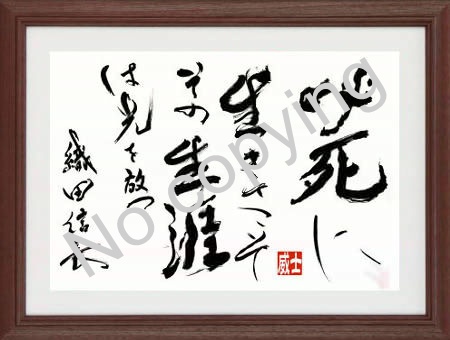 必死に
生きてこそ
その生涯
は光を放つ
織田信長
威士
No copying